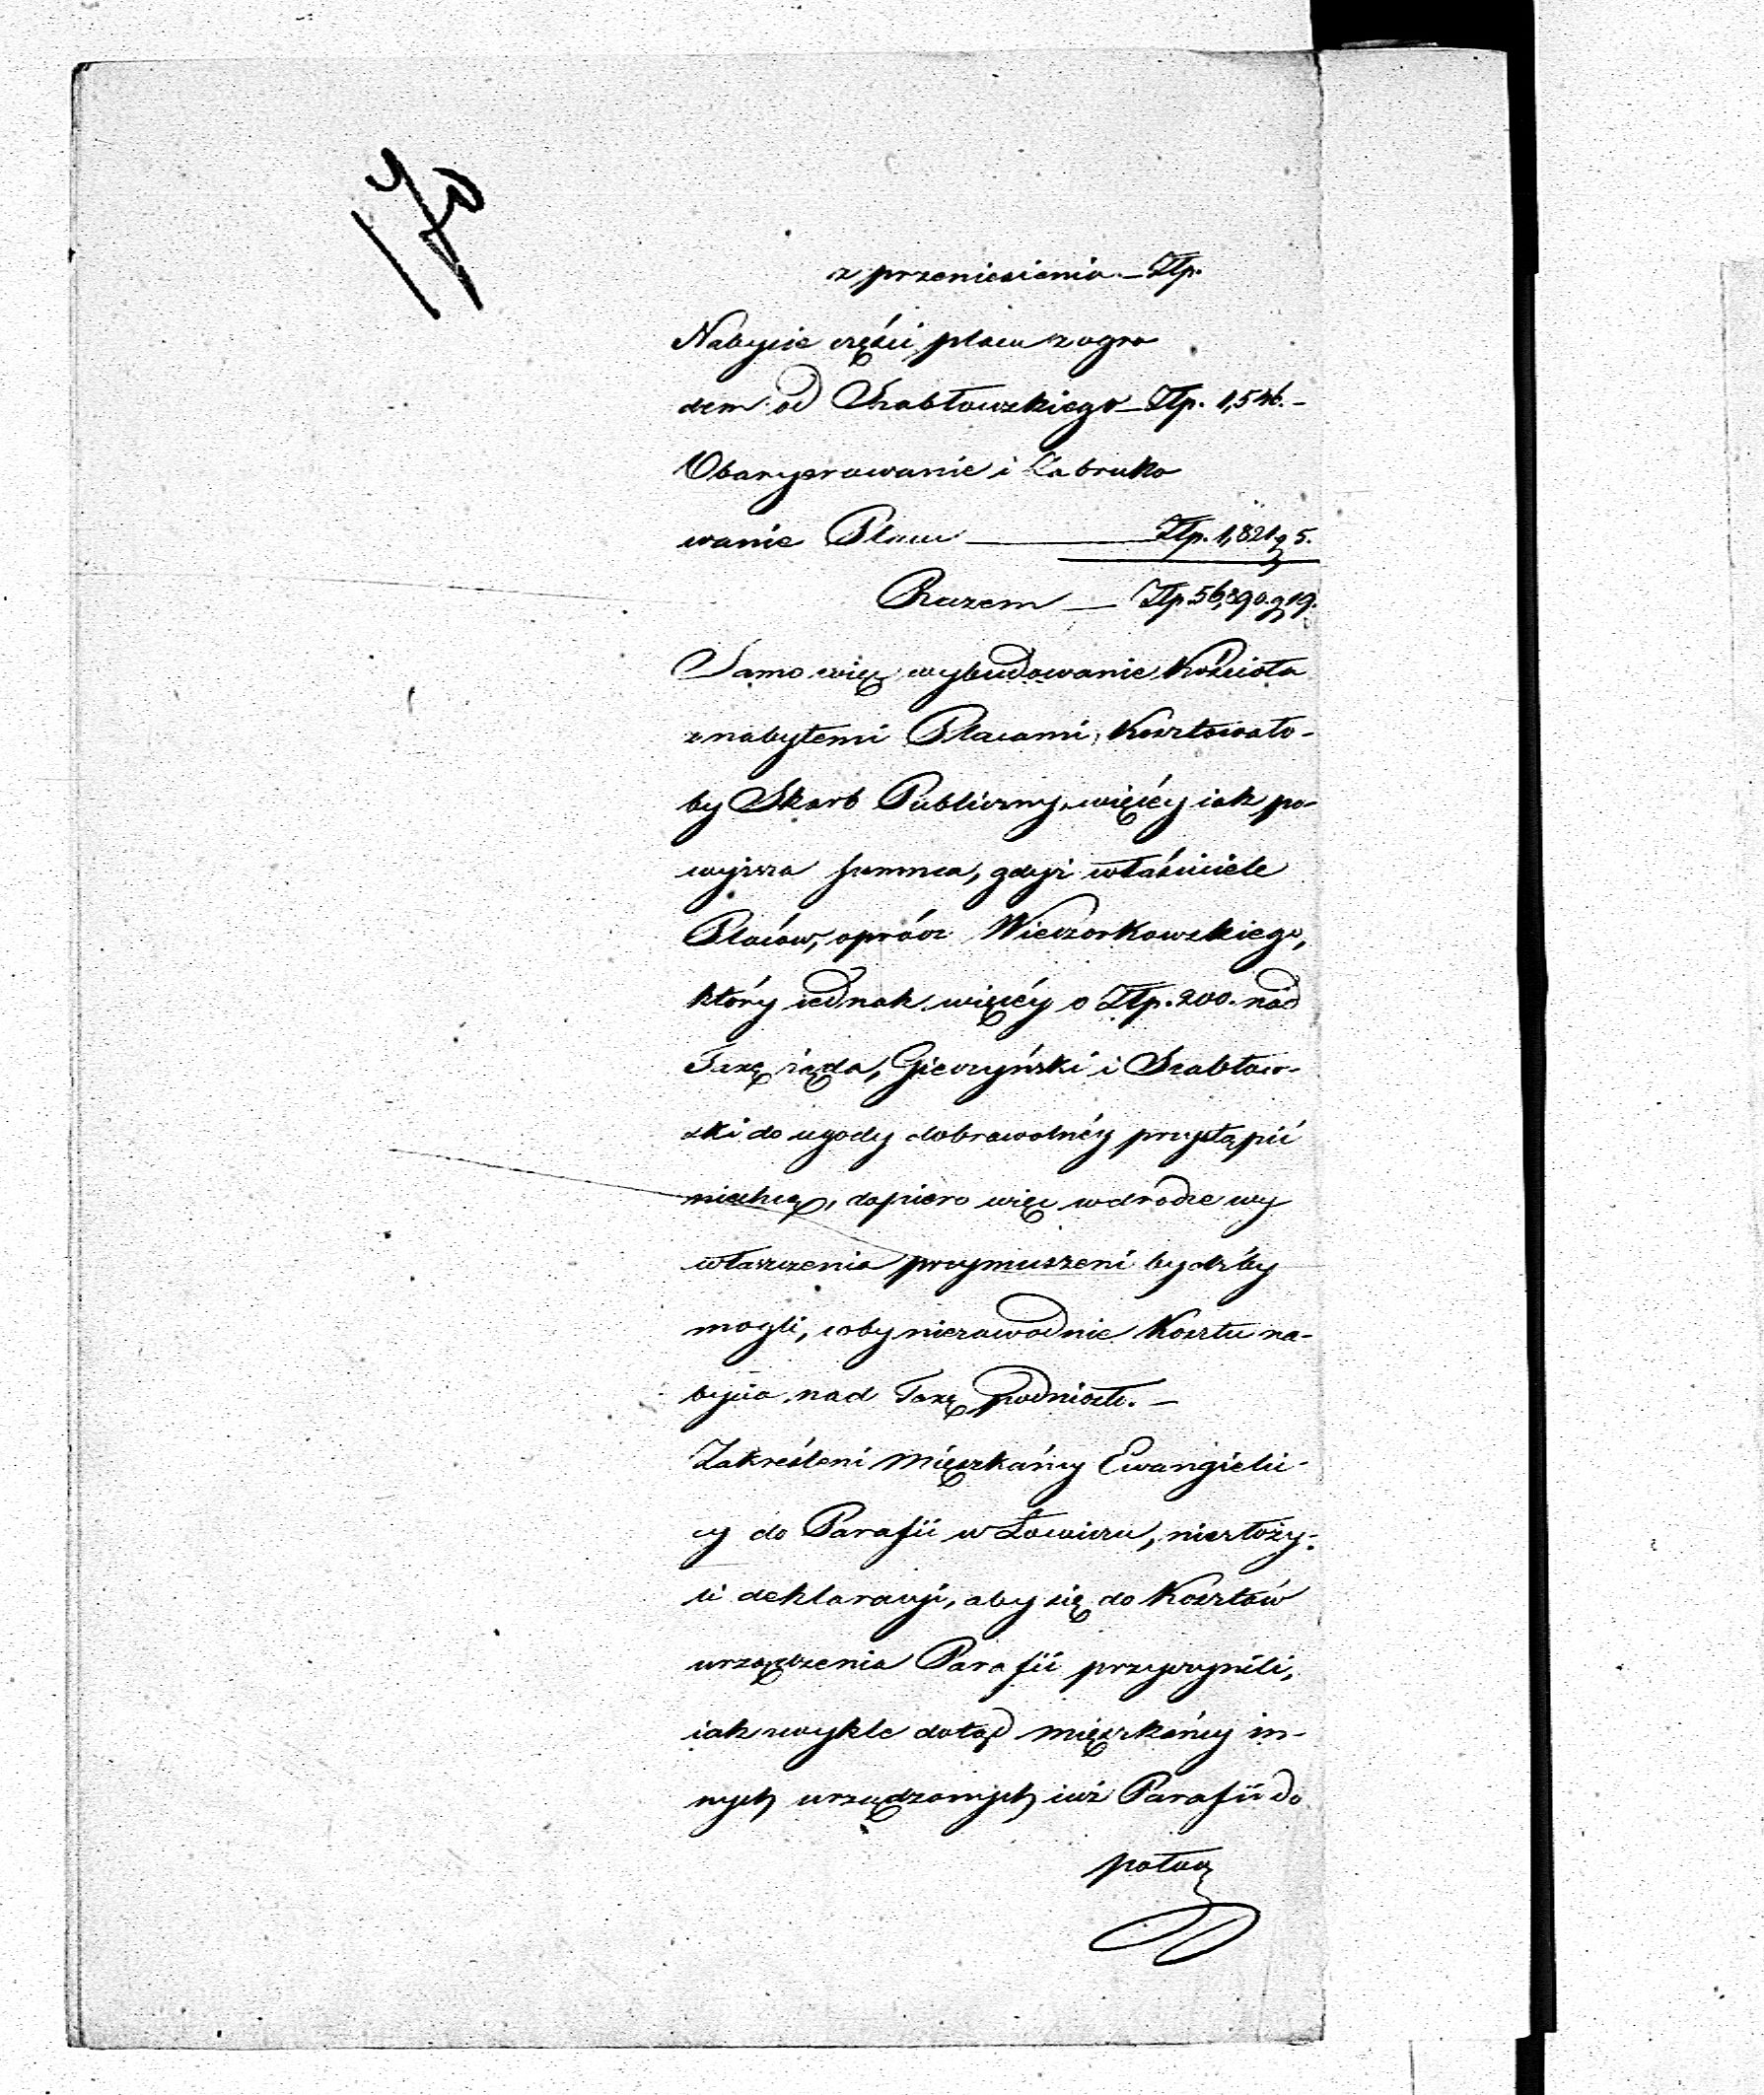 170
z przeniesienia.— Złp.
Nabycie części placu z ogro
dem od Szabłowskiego — Złp. 1,546.—
Obaryerowanie i Zabruko
wanie Placu — Złp. 1,821 g 5.
Razem — Złp. 56,890. g 19.
Samo więc wybudowanie Kościoła
z nabytemi Placami, Kosztowało-
by Skarb Publiczny, więcéy iak po-
wyższa summa, gdyż właściciele
Placów, oprócz Wieczorkowskiego,
który iednak więcéy o Złp. 200. nad
Taxę żąda, Gieczyński i Szabłow-
ski do ugody dobrowolnéy przystąpić
niechcą, dopiero więc w drodze wy
właszczenia przymuszeni bydźby
mogli, coby niezawodnie Kosztu na-
bycia nad Taxę podniosło.—
Zakreśleni Mieszkańcy Ewangielic-
cy do Parafii w Łowiczu, niezłoży-
li deklaracyi, aby się do Kosztów
urządzenia Parafii przyczynili,
iak zwykle dotąd Mieszkańcy in-
nych urządzonych iuż Parafii do